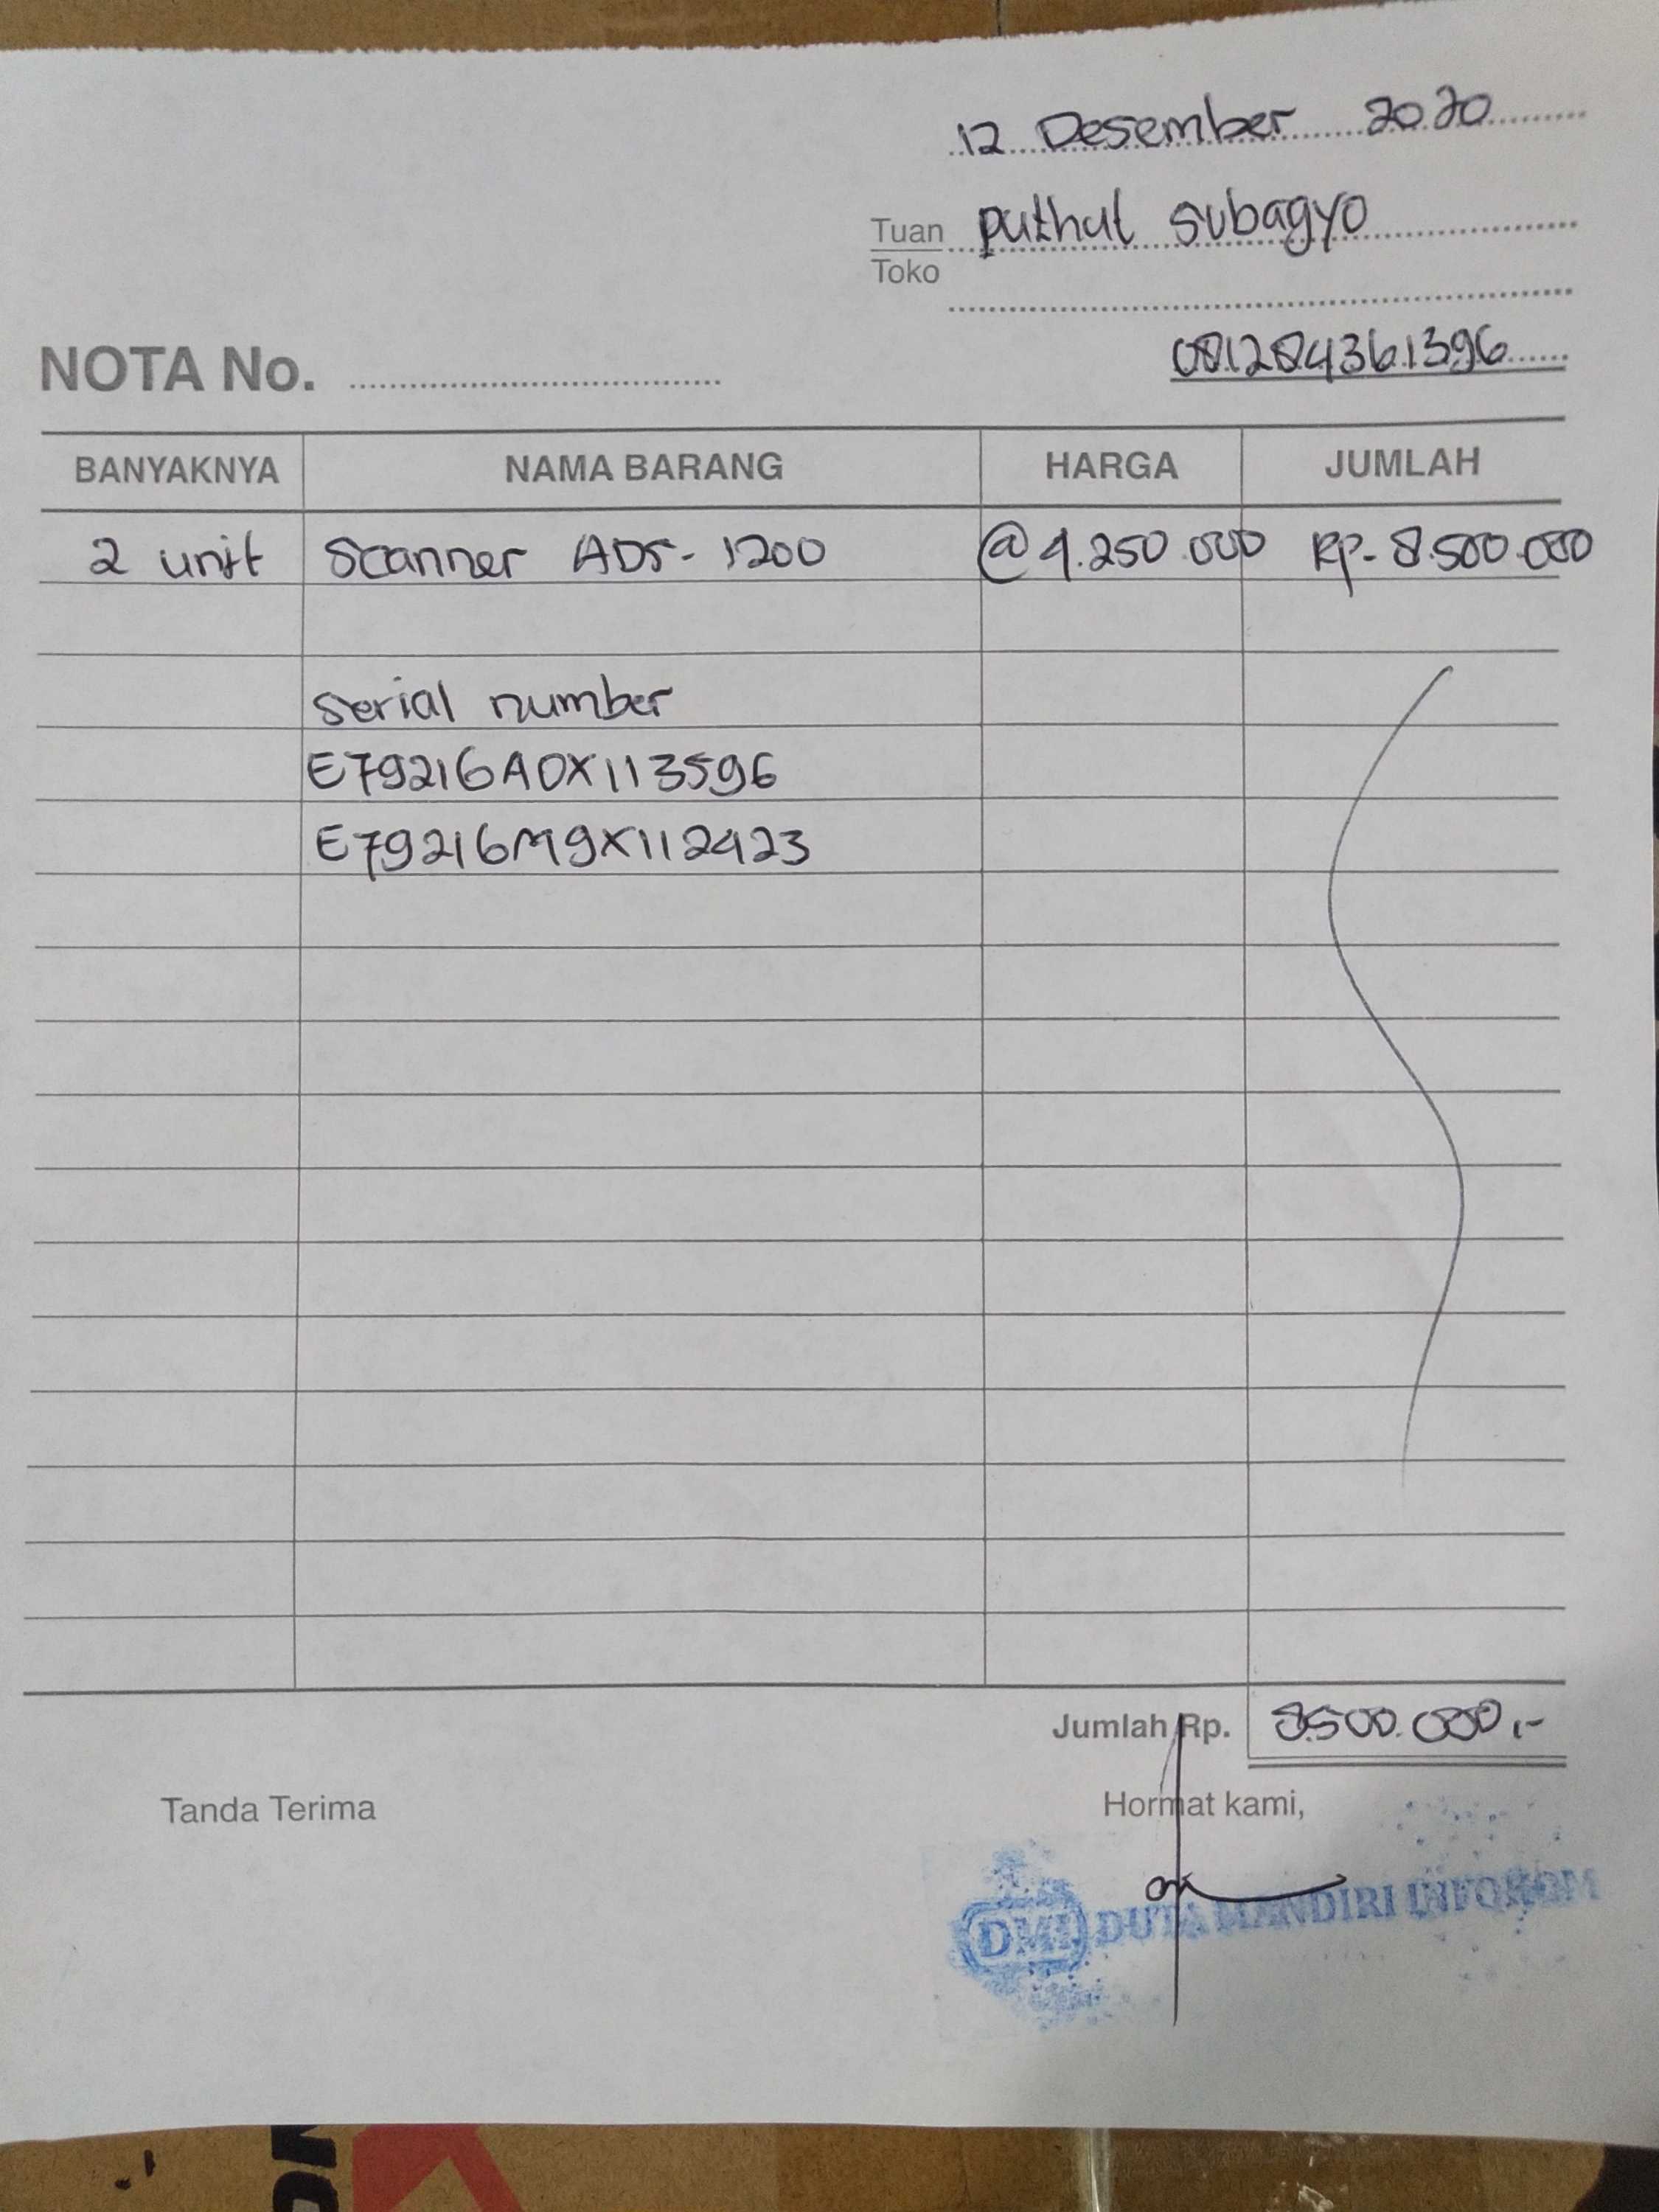 12 Desember 2020
Tuan puthut subagyo
Toko
081284361396
NOTA No.
BANYAKNYA NAMA BARANG HARGA JUMLAH
2 unit Scanner ADS-1200 @4.250.000 Rp. 8.500.000
Serial number
E79216A0X113596
E79216M9X112423
Jumlah Rp. 8.500.000,-
Tanda Terima Hormat kami,
DMI DUTA MANDIRI INFOKOM